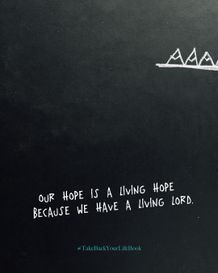 OUR HOPE IS A LIVING HOPE
BECAUSE WE HAVE A LIVING LORD.
#TakeBackYourLifeBook